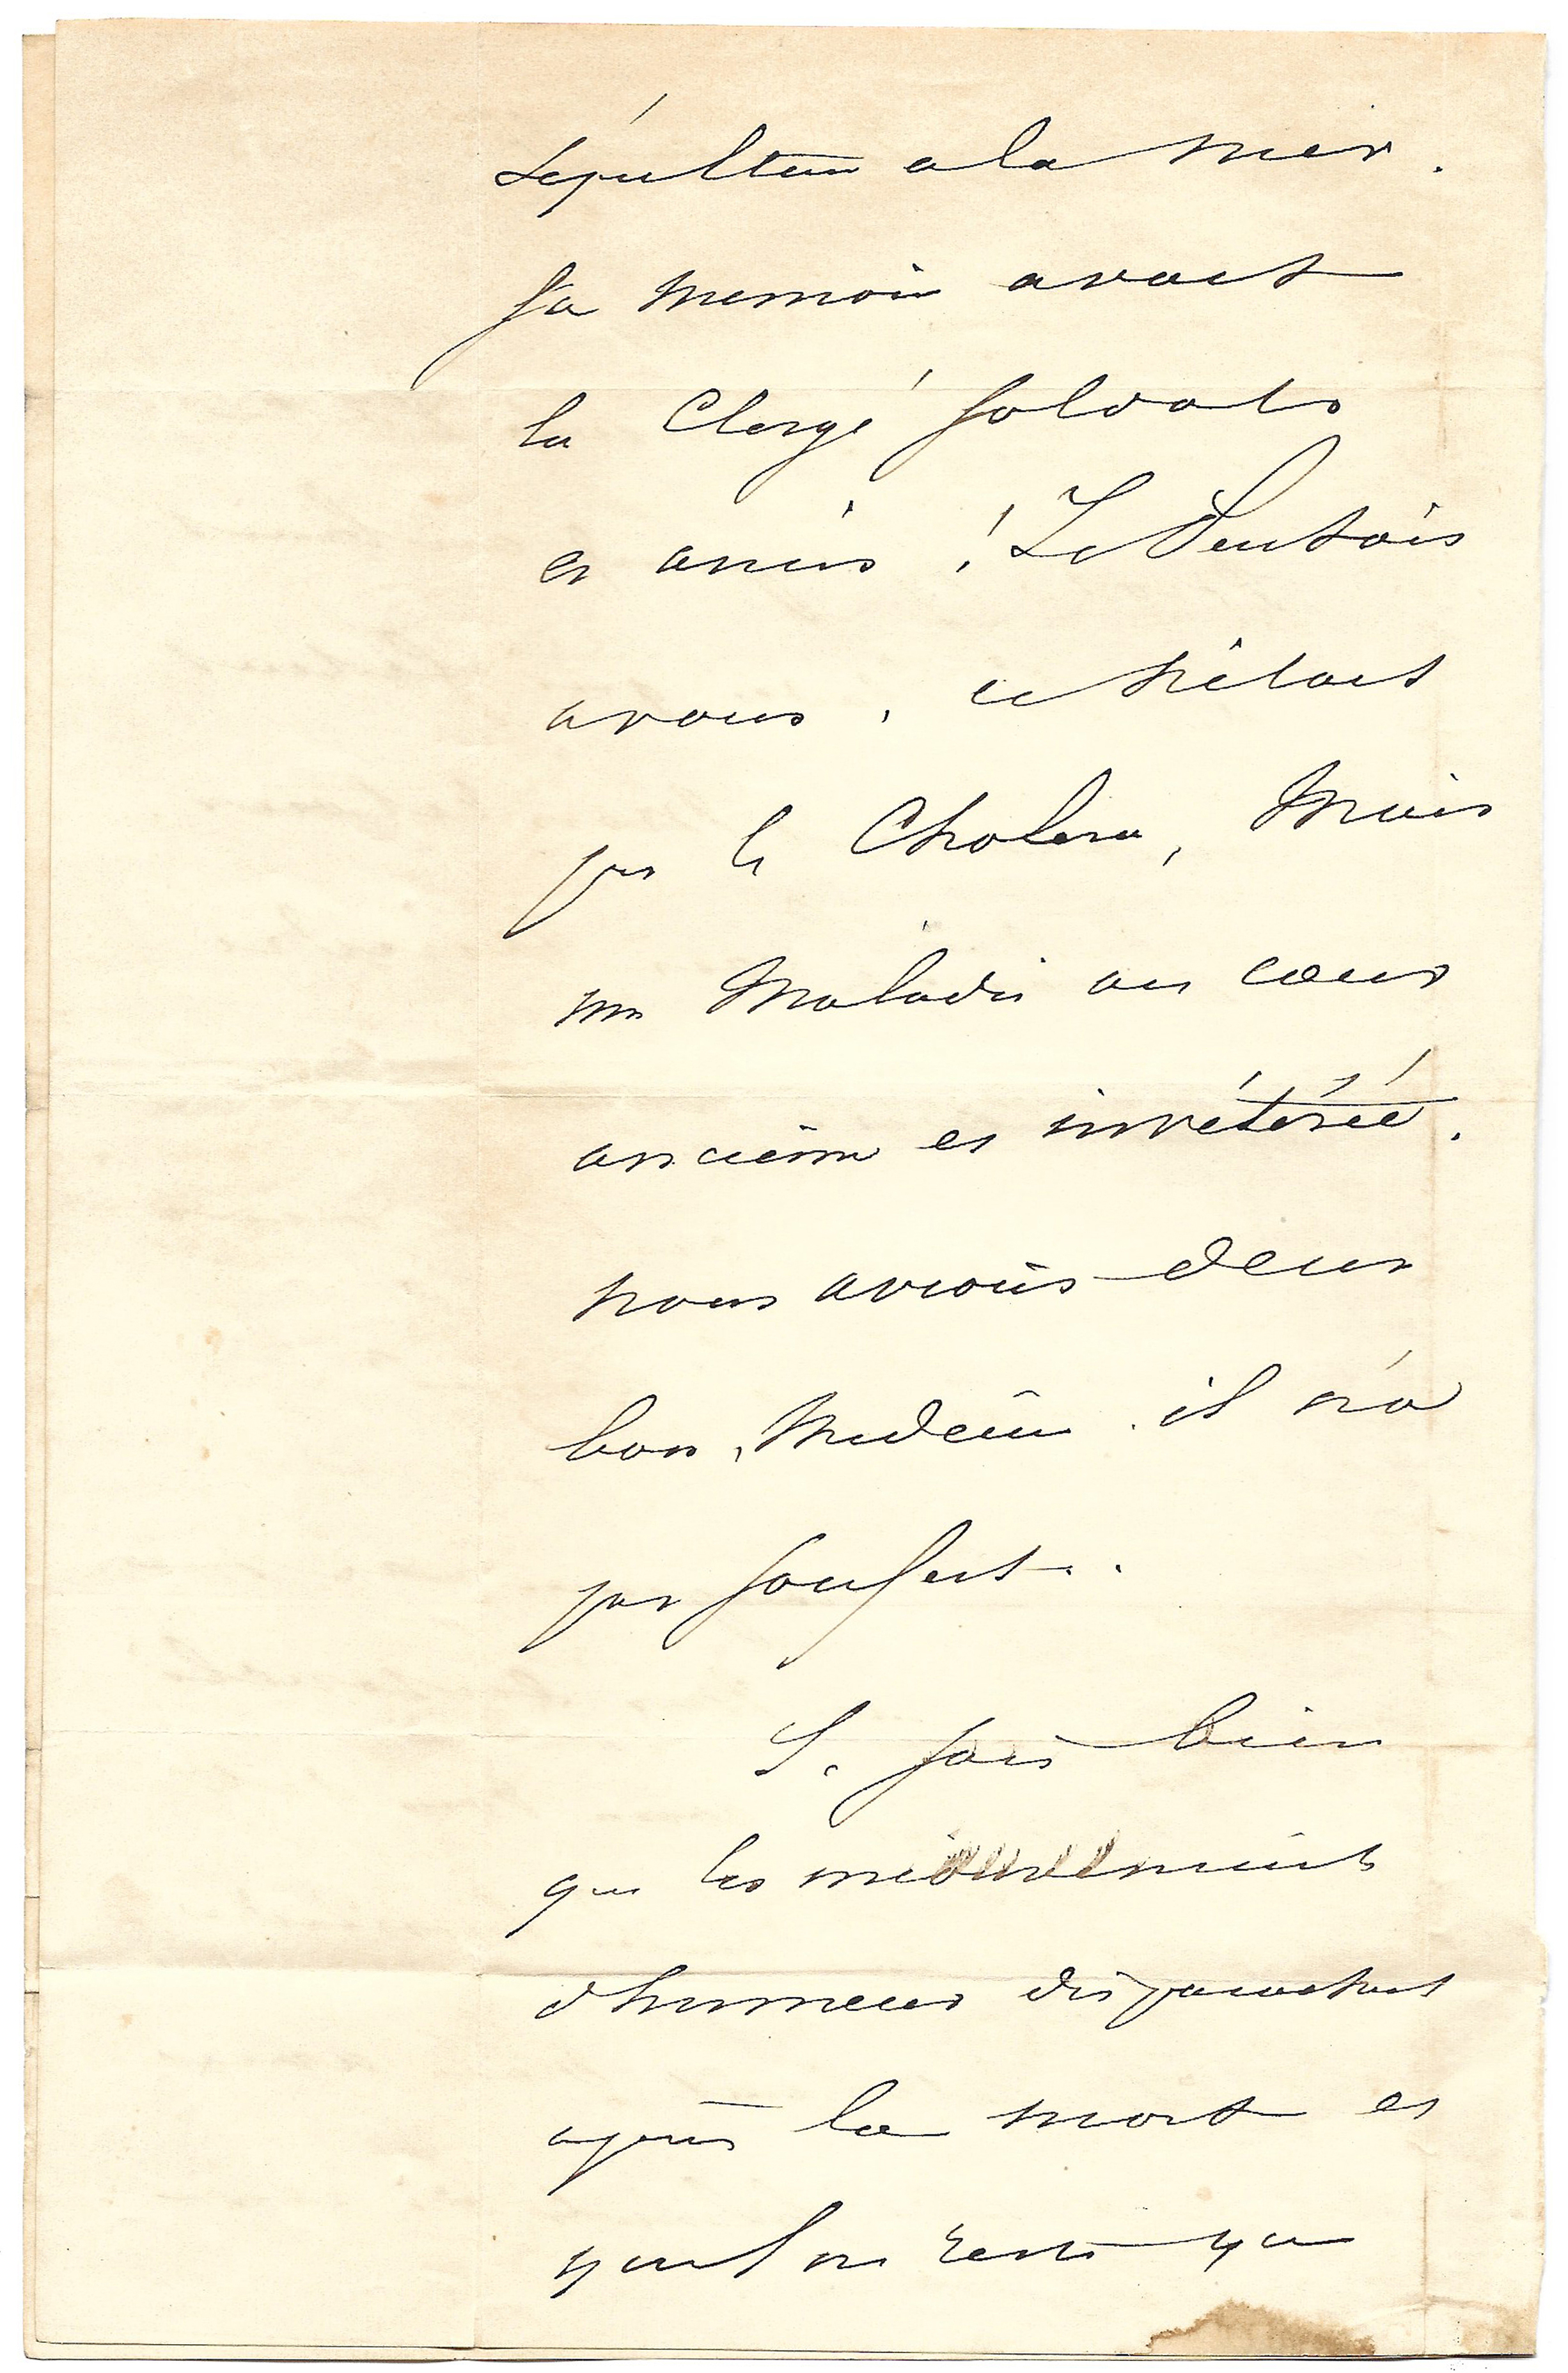 sépulture a la mer.
Sa memoire avait
le Clergé soldats
et amis! Je
avous, ce n'etait
pas le Cholera, Mais
une Maladie au cœur
ancienne et invétérée.
nous avions deux
bons, Medecins. il n'a
pas soufert..
Je sais bien
que les mouvements
d'humeur disparaissent
après la mort et
qu'il ne reste que